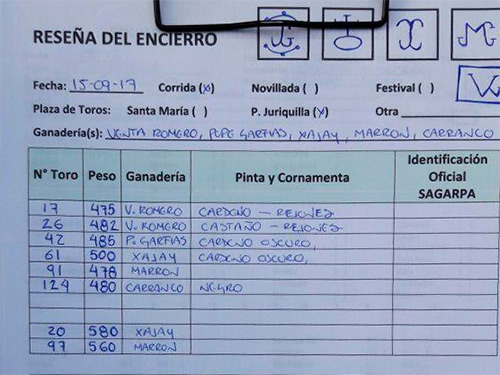 RESEÑA DEL ENCIERRO
Fecha: 15-09-17 Corrida (x) Novillada ( ) Festival ( )
Plaza de Toros: Santa María ( ) P. Juriquilla (x) Otra
Ganadería(s): VENTA ROMERO, PEPE GARFIAS, XAJAY, MARRON, CARRANCO
N° Toro Peso Ganadería Pinta y Cornamenta Identificación Oficial SAGARPA
17 475 V. ROMERO CARDENO - REJONES
26 482 V. ROMERO CASTAÑO - REJONES
42 485 P. GARFIAS CARDENO OSCURO,
61 500 XAJAY CARDENO OSCURO,
91 478 MARRON
124 480 CARRANCO NEGRO
20 580 XAJAY
97 560 MARRON